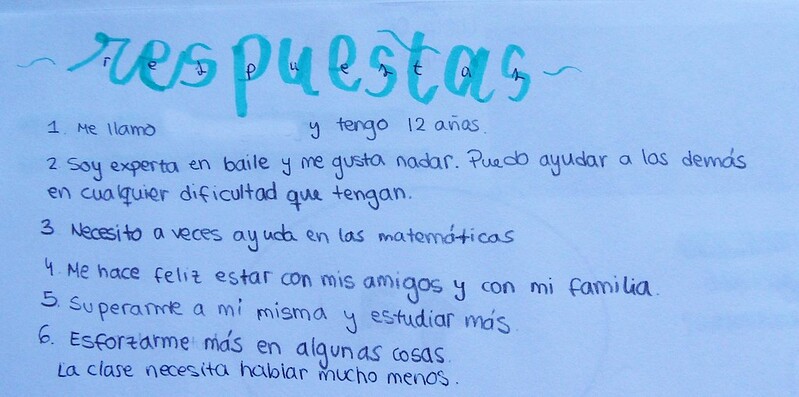 ~ respuestas ~
1. Me llamo y tengo 12 años.
2. Soy experta en baile y me gusta nadar. Puedo ayudar a los demás
en cualquier dificultad que tengan.
3. Necesito a veces ayuda en las matemáticas
4. Me hace feliz estar con mis amigos y con mi familia.
5. Superarme a mi misma y estudiar más.
6. Esforzarme más en algunas cosas.
La clase necesita hablar mucho menos.